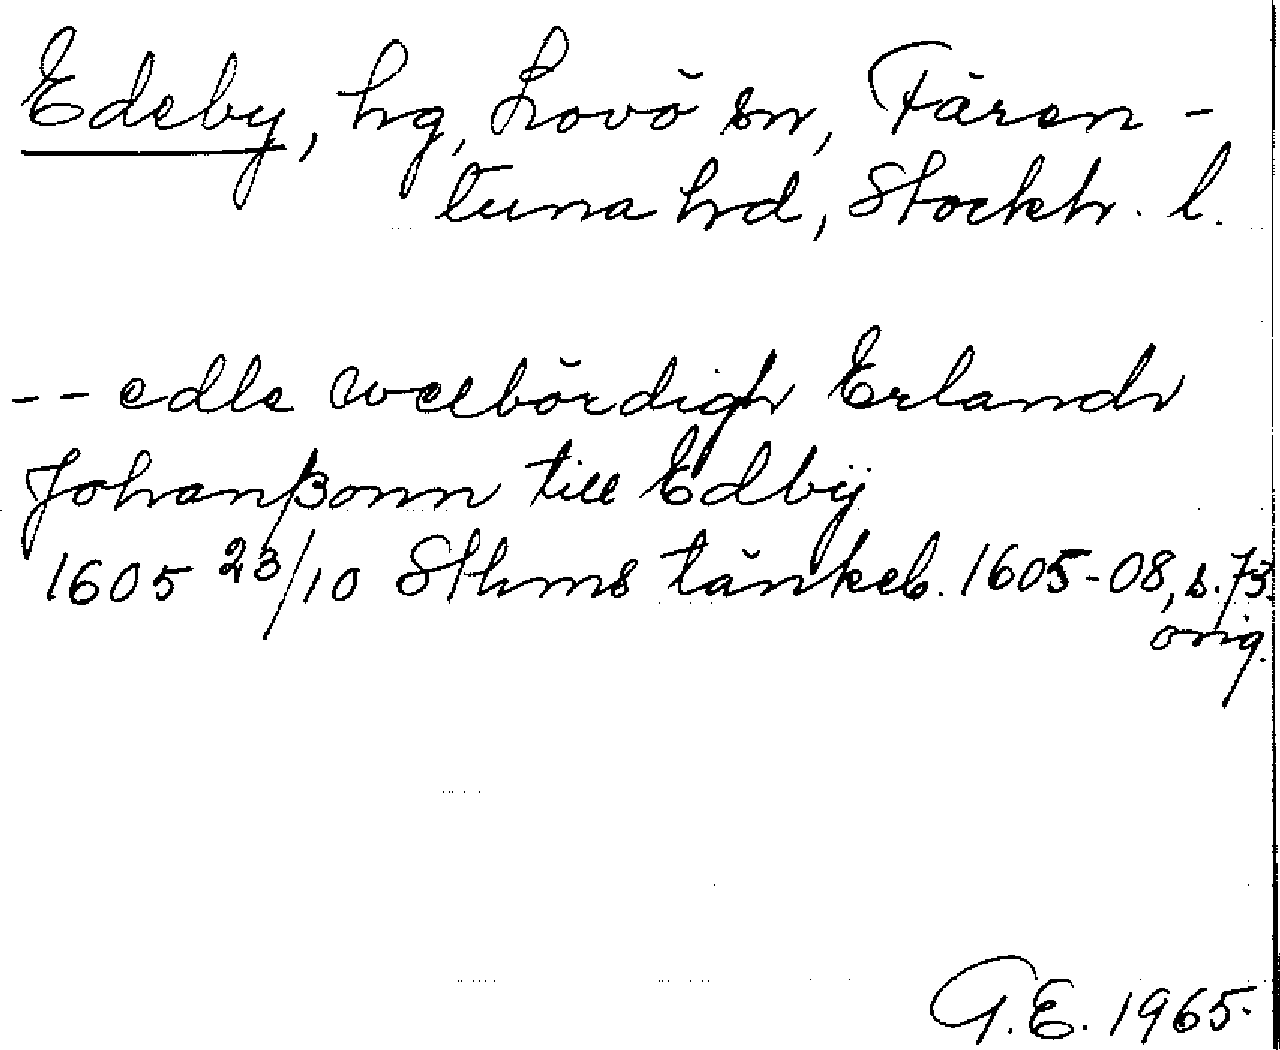 Edeby, hg, Lovö sn, Fären-
tuna hd, Stockh. l.
-- edle welbördigh Erlandh
Johanßonn till Edbÿ
1605 23/10 Sthms tänkeb. 1605-08, s. 73.
orig.
G.E. 1965.